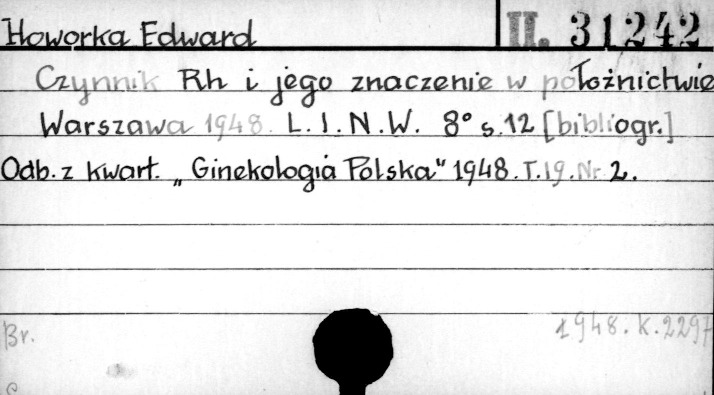 Howorka Edward
II. 31242
Czynnik Rh i jego znaczenie w położnictwie
Warszawa 1948. L.I.N.W. 8° s.12 [bibliogr.]
Odb. z kwart. „Ginekologia Polska" 1948. T.19. Nr 2.
Br.
1948. K. 2297